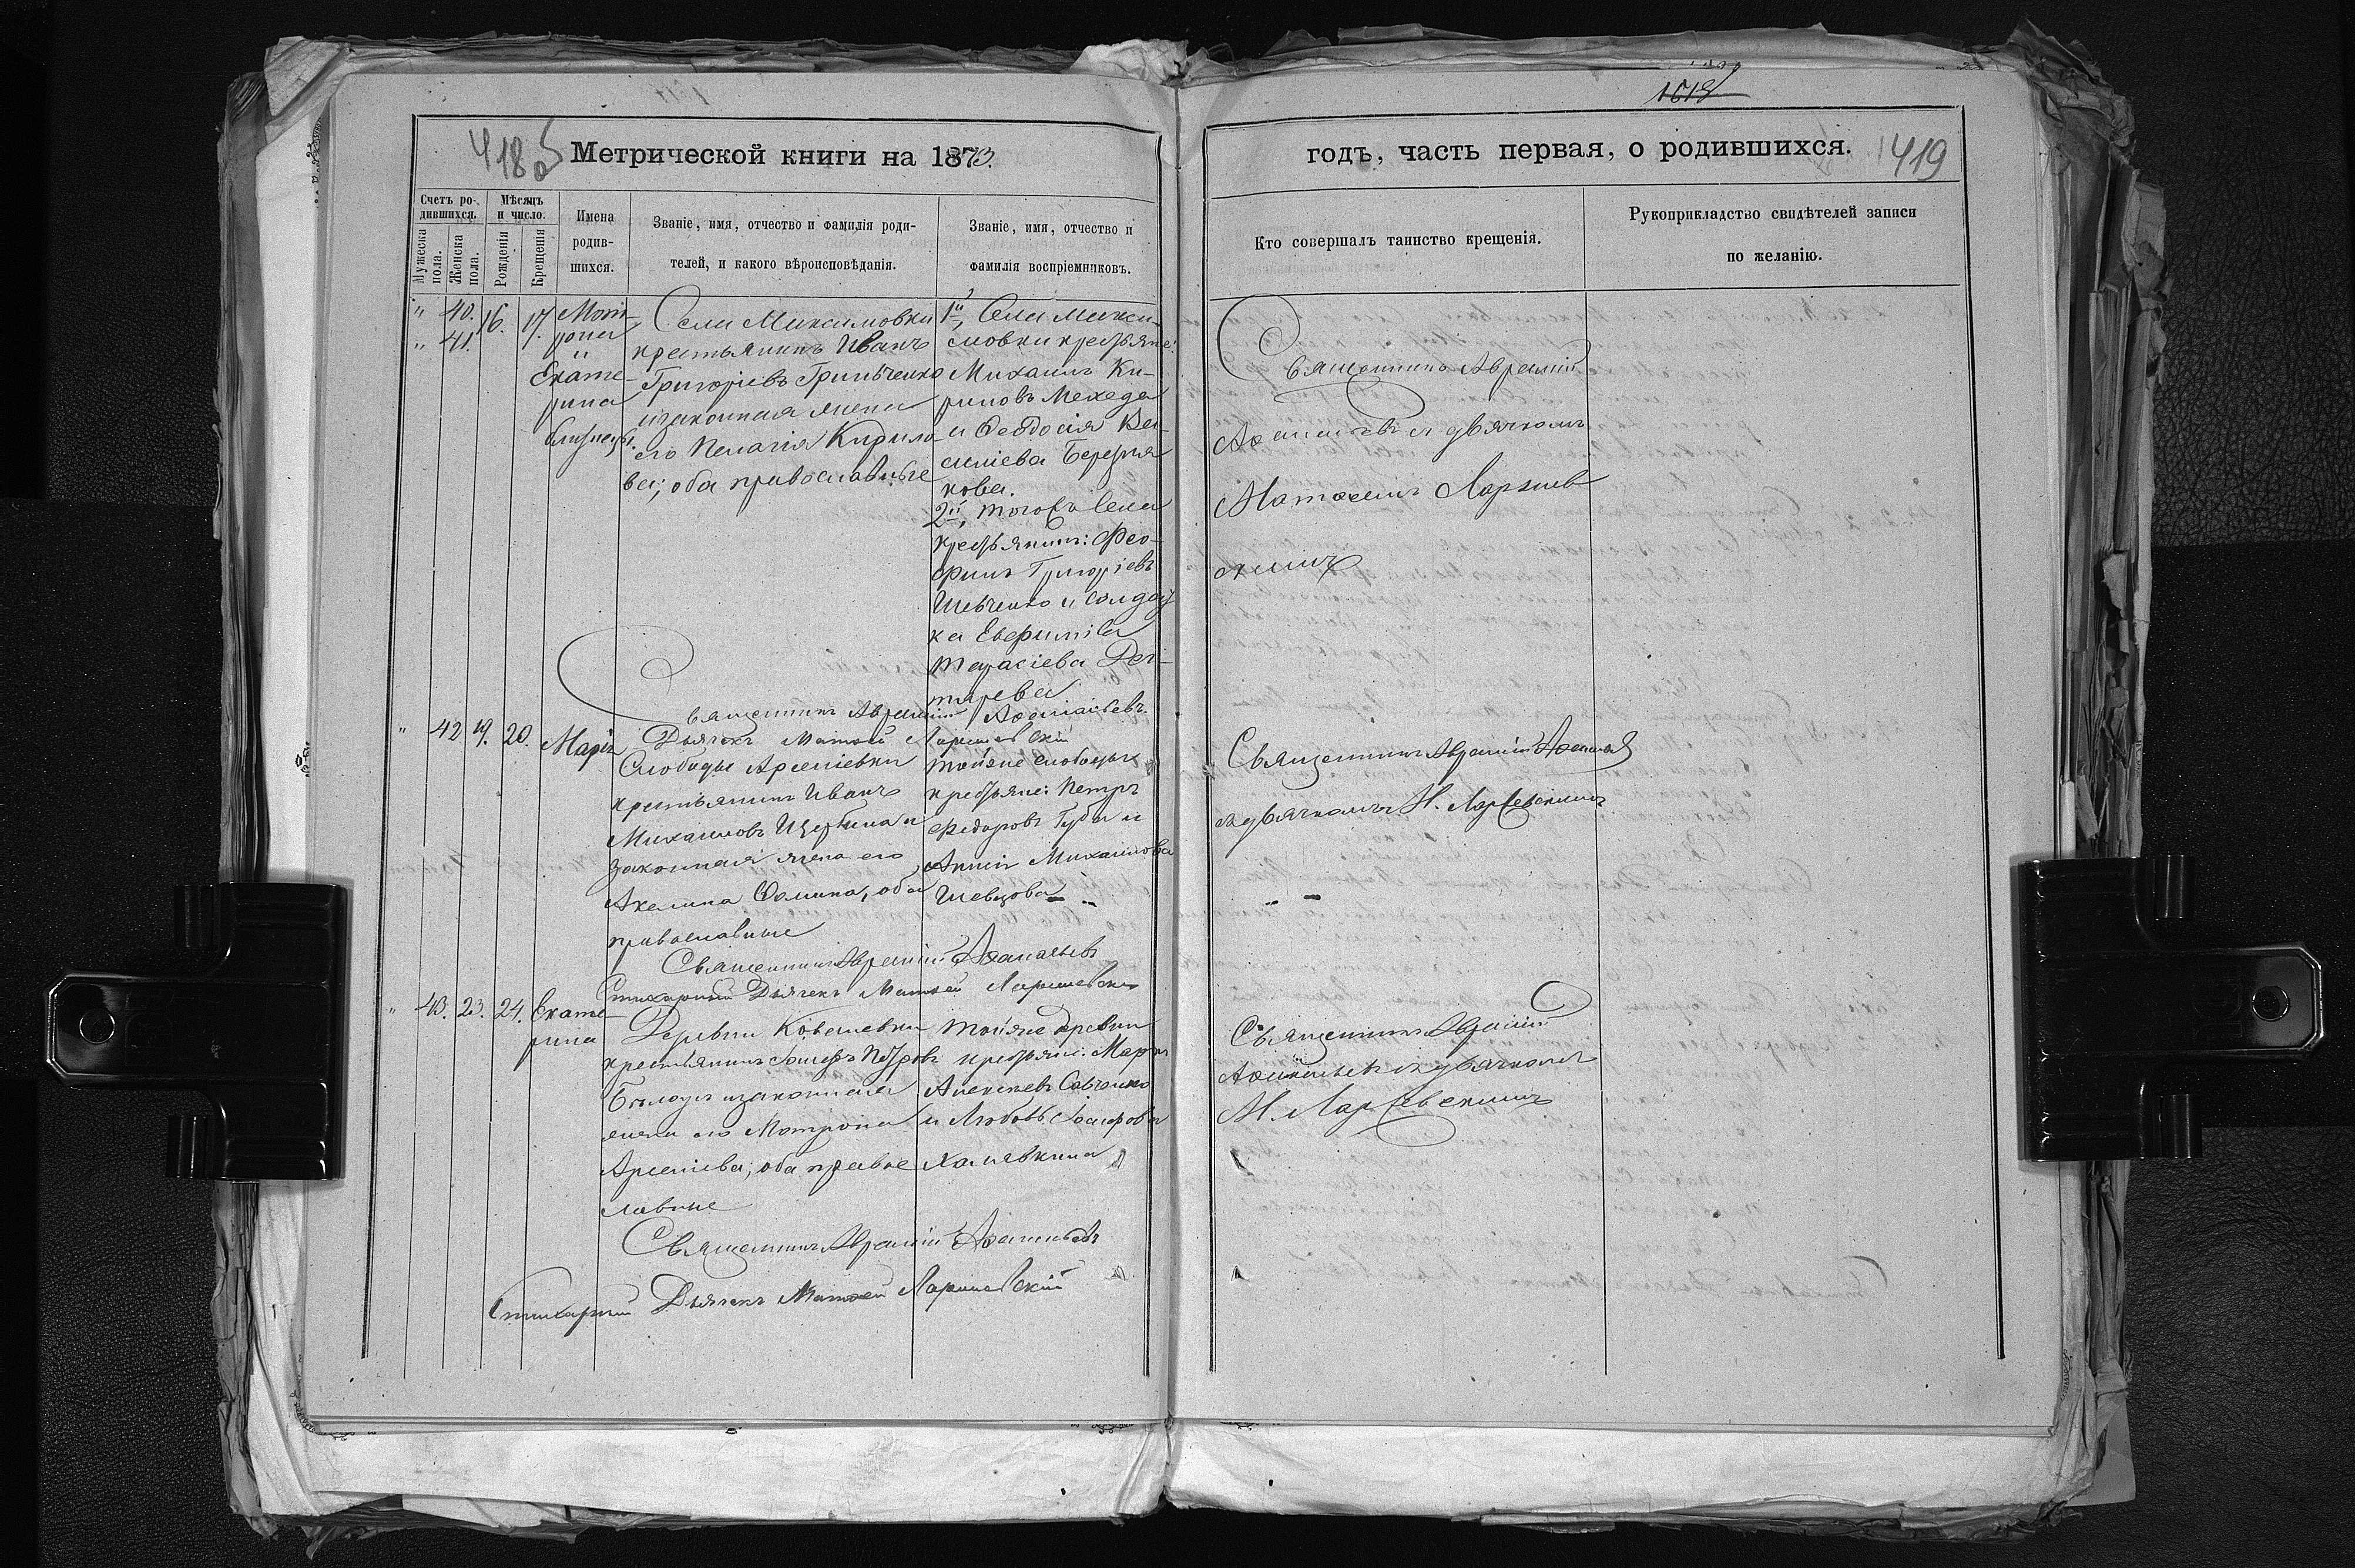 1619
418 об
Метрической книги на 1873.
годъ, часть первая, о родившихся.
1419
Счетъ ро-
дившихся.
Мѣсяцъ
и число.
Мужеска
пола.
Женска
пола.
Рожденія
Крещенія
Имена
родив-
шихся.
Званіе, имя, отчество и фамилія роди-
телей, и какого вѣроисповѣданія.
Званіе, имя, отчество и
фамилія воспріемниковъ.
Кто совершалъ таинство крещенія.
Рукоприкладство свидѣтелей записи
по желанію.
" 40. 16. 17.
" 41.
Мат-
рона
"
Екате-
рина
близнецы.
Села Максимовки
крестьянинъ Иванъ
Григоріевъ Гринченко
и законная жена
его Пелагія Кирило-
ва; оба православные
1й, Села Макси-
мовки крестьяне:
Михаилъ Ки-
риловъ Мехеда
и Ѳеодосія Ва-
силіева Березня
кова.
2й, тогожъ села
крестьянинъ: Фео-
филъ Григоріевъ
Шевченко и солдат
ка Евфимія
Тарасіева Дег-
тярева
Священникъ Аврамій
Аѳанасьевъ съ дьячкомъ
Матѳеемъ Ларіев
Священникъ Аврамій Аѳанасьевъ.
Дьячекъ Матѳей
" 42. 19. 20. Марія
Слободы Арсеніевки
крестьянинъ Иванъ
Михаиловъ Щербина и
законная жена его
Акелина Фомина, оба
православные
тойже слободы
крестьяне: Петръ
Федоровъ Губа и
Анна Михаилова
Шевцова
Священникъ Аврамій Аѳанасьев
съ дьячкомъ М.
Священникъ Аврамій Аѳанасьевъ
Стихарный Дьячекъ Матѳей
" 43. 23. 24. Екате-
рина
Деревни
крестьянинъ Іосифъ Петровъ
Бѣлоусъ и законная
жена его Матрона
Арсеніева; оба право
славные
тойже деревни
крестьяне: Маркъ
Алексѣевъ Савченко
и Любовь
Халявкина
Священникъ Аврамій
Аѳанасьевъ съ дьячкомъ
М.
Священникъ Аврамій Аѳанасьевъ
Стихарный Дьячекъ Матѳей